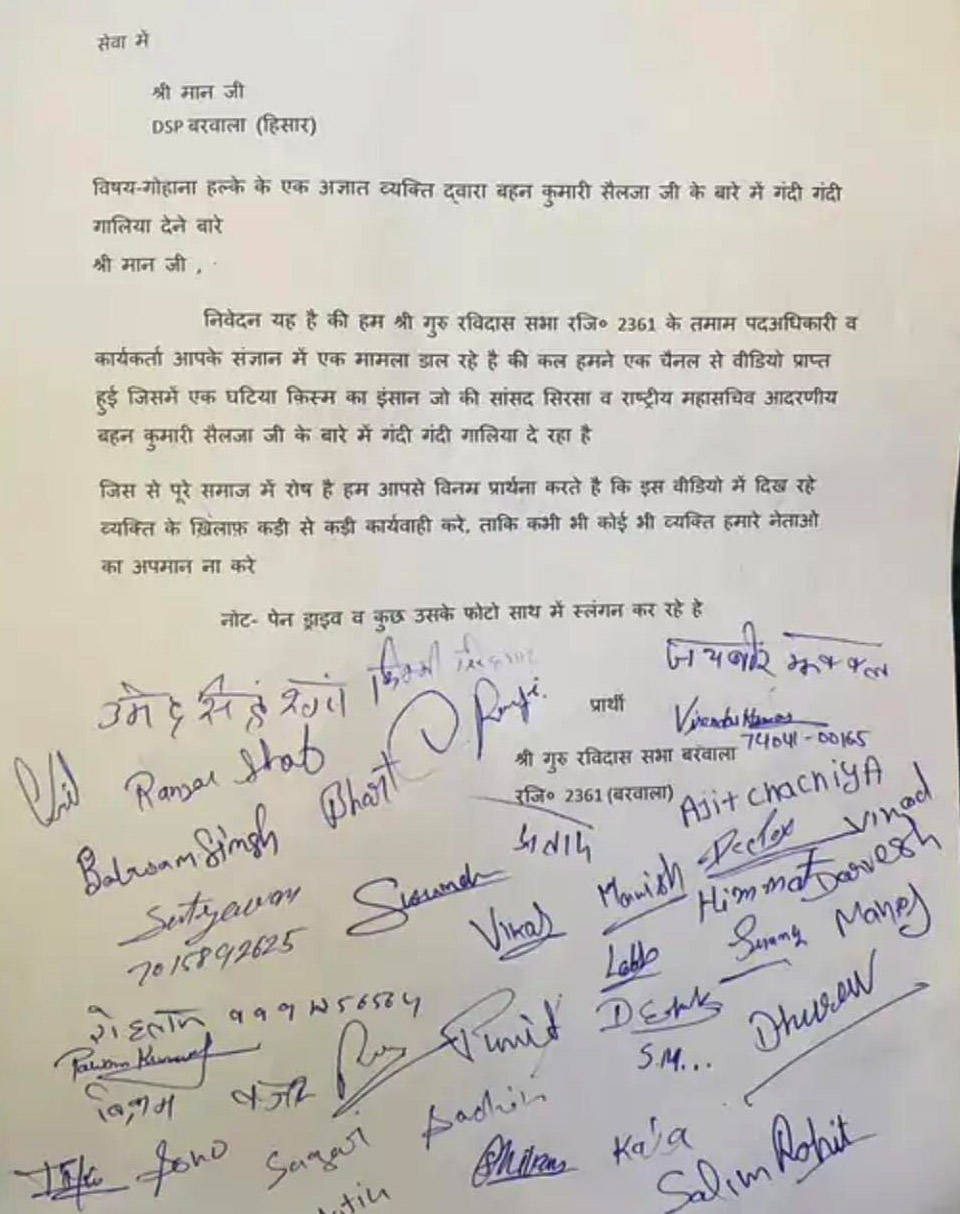 सेवा में
श्री मान जी
DSP बरवाला (हिसार)
विषय-गोहाना हल्के के एक अज्ञात व्यक्ति द्वारा बहन कुमारी सैलजा जी के बारे में गंदी गंदी
गालिया देने बारे
श्री मान जी ,
निवेदन यह है की हम श्री गुरु रविदास सभा रजि० 2361 के तमाम पदअधिकारी व
कार्यकर्ता आपके संज्ञान में एक मामला डाल रहे है की कल हमने एक चैनल से वीडियो प्राप्त
हुई जिसमें एक घटिया क़िस्म का इंसान जो की सांसद सिरसा व राष्ट्रीय महासचिव आदरणीय
बहन कुमारी सैलजा जी के बारे में गंदी गंदी गालिया दे रहा है
जिस से पूरे समाज में रोष है हम आपसे विनम प्रार्थना करते है कि इस वीडियो में दिख रहे
व्यक्ति के ख़िलाफ़ कड़ी से कड़ी कार्यवाही करे, ताकि कभी भी कोई भी व्यक्ति हमारे नेताओ
का अपमान ना करे
नोट- पेन ड्राइव व कुछ उसके फोटो साथ में स्लंगन कर रहे हे
उमेद सिंह
जयबीर
प्रार्थी
Virender Kumar
74041-00165
श्री गुरु रविदास सभा बरवाला
रजि० 2361 (बरवाला)
Ajit chachiyA
Balwam Singh
Bharti
प्रताप
Vinod
Satyawan
7015892625
Vikas
Manish
Himmat
Darvesh
Manoj
Labh
रोहताश
Pawan Kumar
Punit
S.M...
Dhurew
बिक्रम
Sonu
Sagar
Sachin
Kala
Salim
Rohit